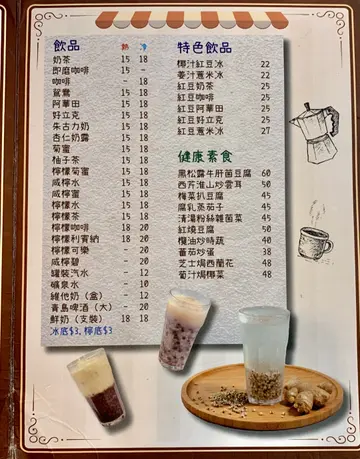 飲品 熱 冷
奶茶 15 18
即磨咖啡 15 –
咖啡 – 18
鴛鴦 15 18
阿華田 15 18
好立克 15 18
朱古力奶 15 18
杏仁奶露 15 18
菊蜜 15 18
柚子茶 15 18
檸檬菊蜜 15 18
咸檸水 15 18
咸檸蜜 15 18
檸檬水 15 18
檸檬茶 15 18
檸檬咖啡 18 20
檸檬利賓納 18 20
檸檬可樂 – 20
咸檸碧 – 20
罐裝汽水 – 12
礦泉水 – 10
維他奶（盒） – 12
青島啤酒（大） – 20
鮮奶（支裝） 18 18
冰底$3, 檸底$3
特色飲品
椰汁紅豆冰 22
姜汁薏米冰 22
紅豆奶茶 25
紅豆咖啡 25
紅豆阿華田 25
紅豆好立克 25
紅豆薏米冰 27
健康素食
黑松露牛肝菌豆腐 60
西芹淮山炒雲耳 50
梅菜扒豆腐 45
腐乳蒸茄子 45
清湯粉絲雜菌菜 45
紅燒豆腐 50
欖油炒時蔬 40
蕃茄炒蛋 38
芝士焗西蘭花 48
葡汁焗椰菜 48